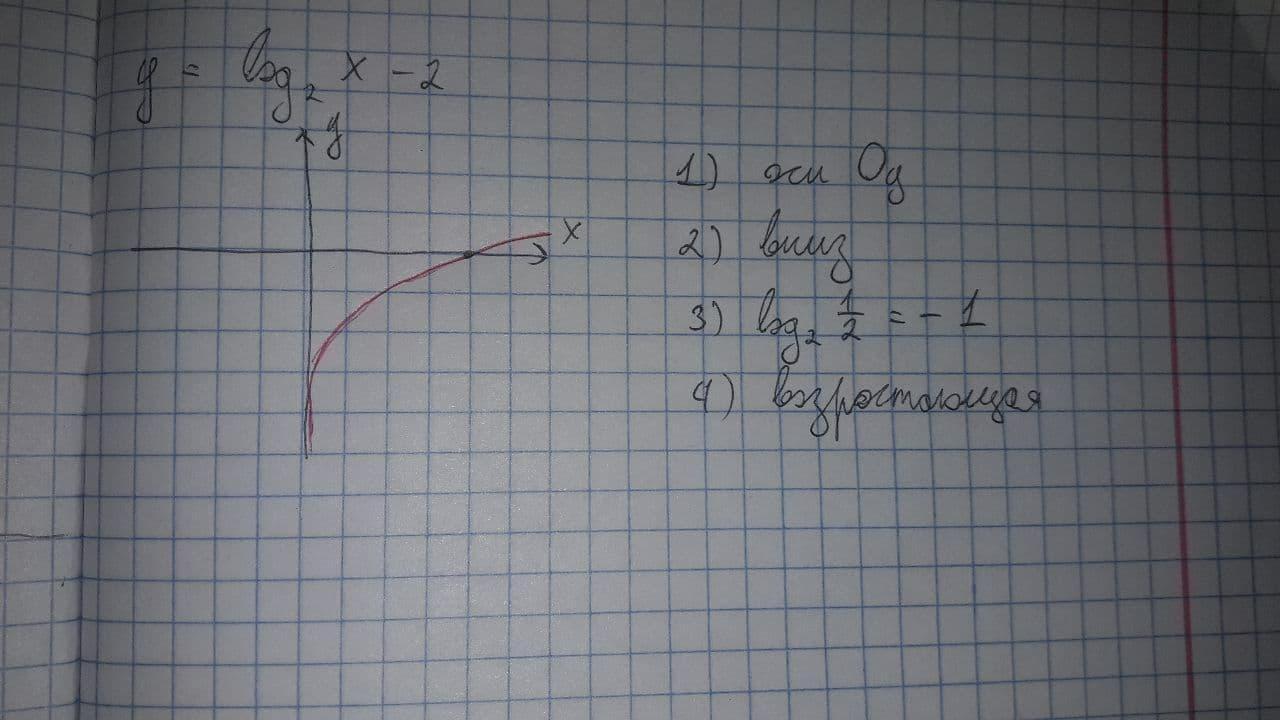 y = log₂ x - 2
y
x
1) оси Oy
2) вниз
3) log₂ 1/2 = - 1
4) возростающая